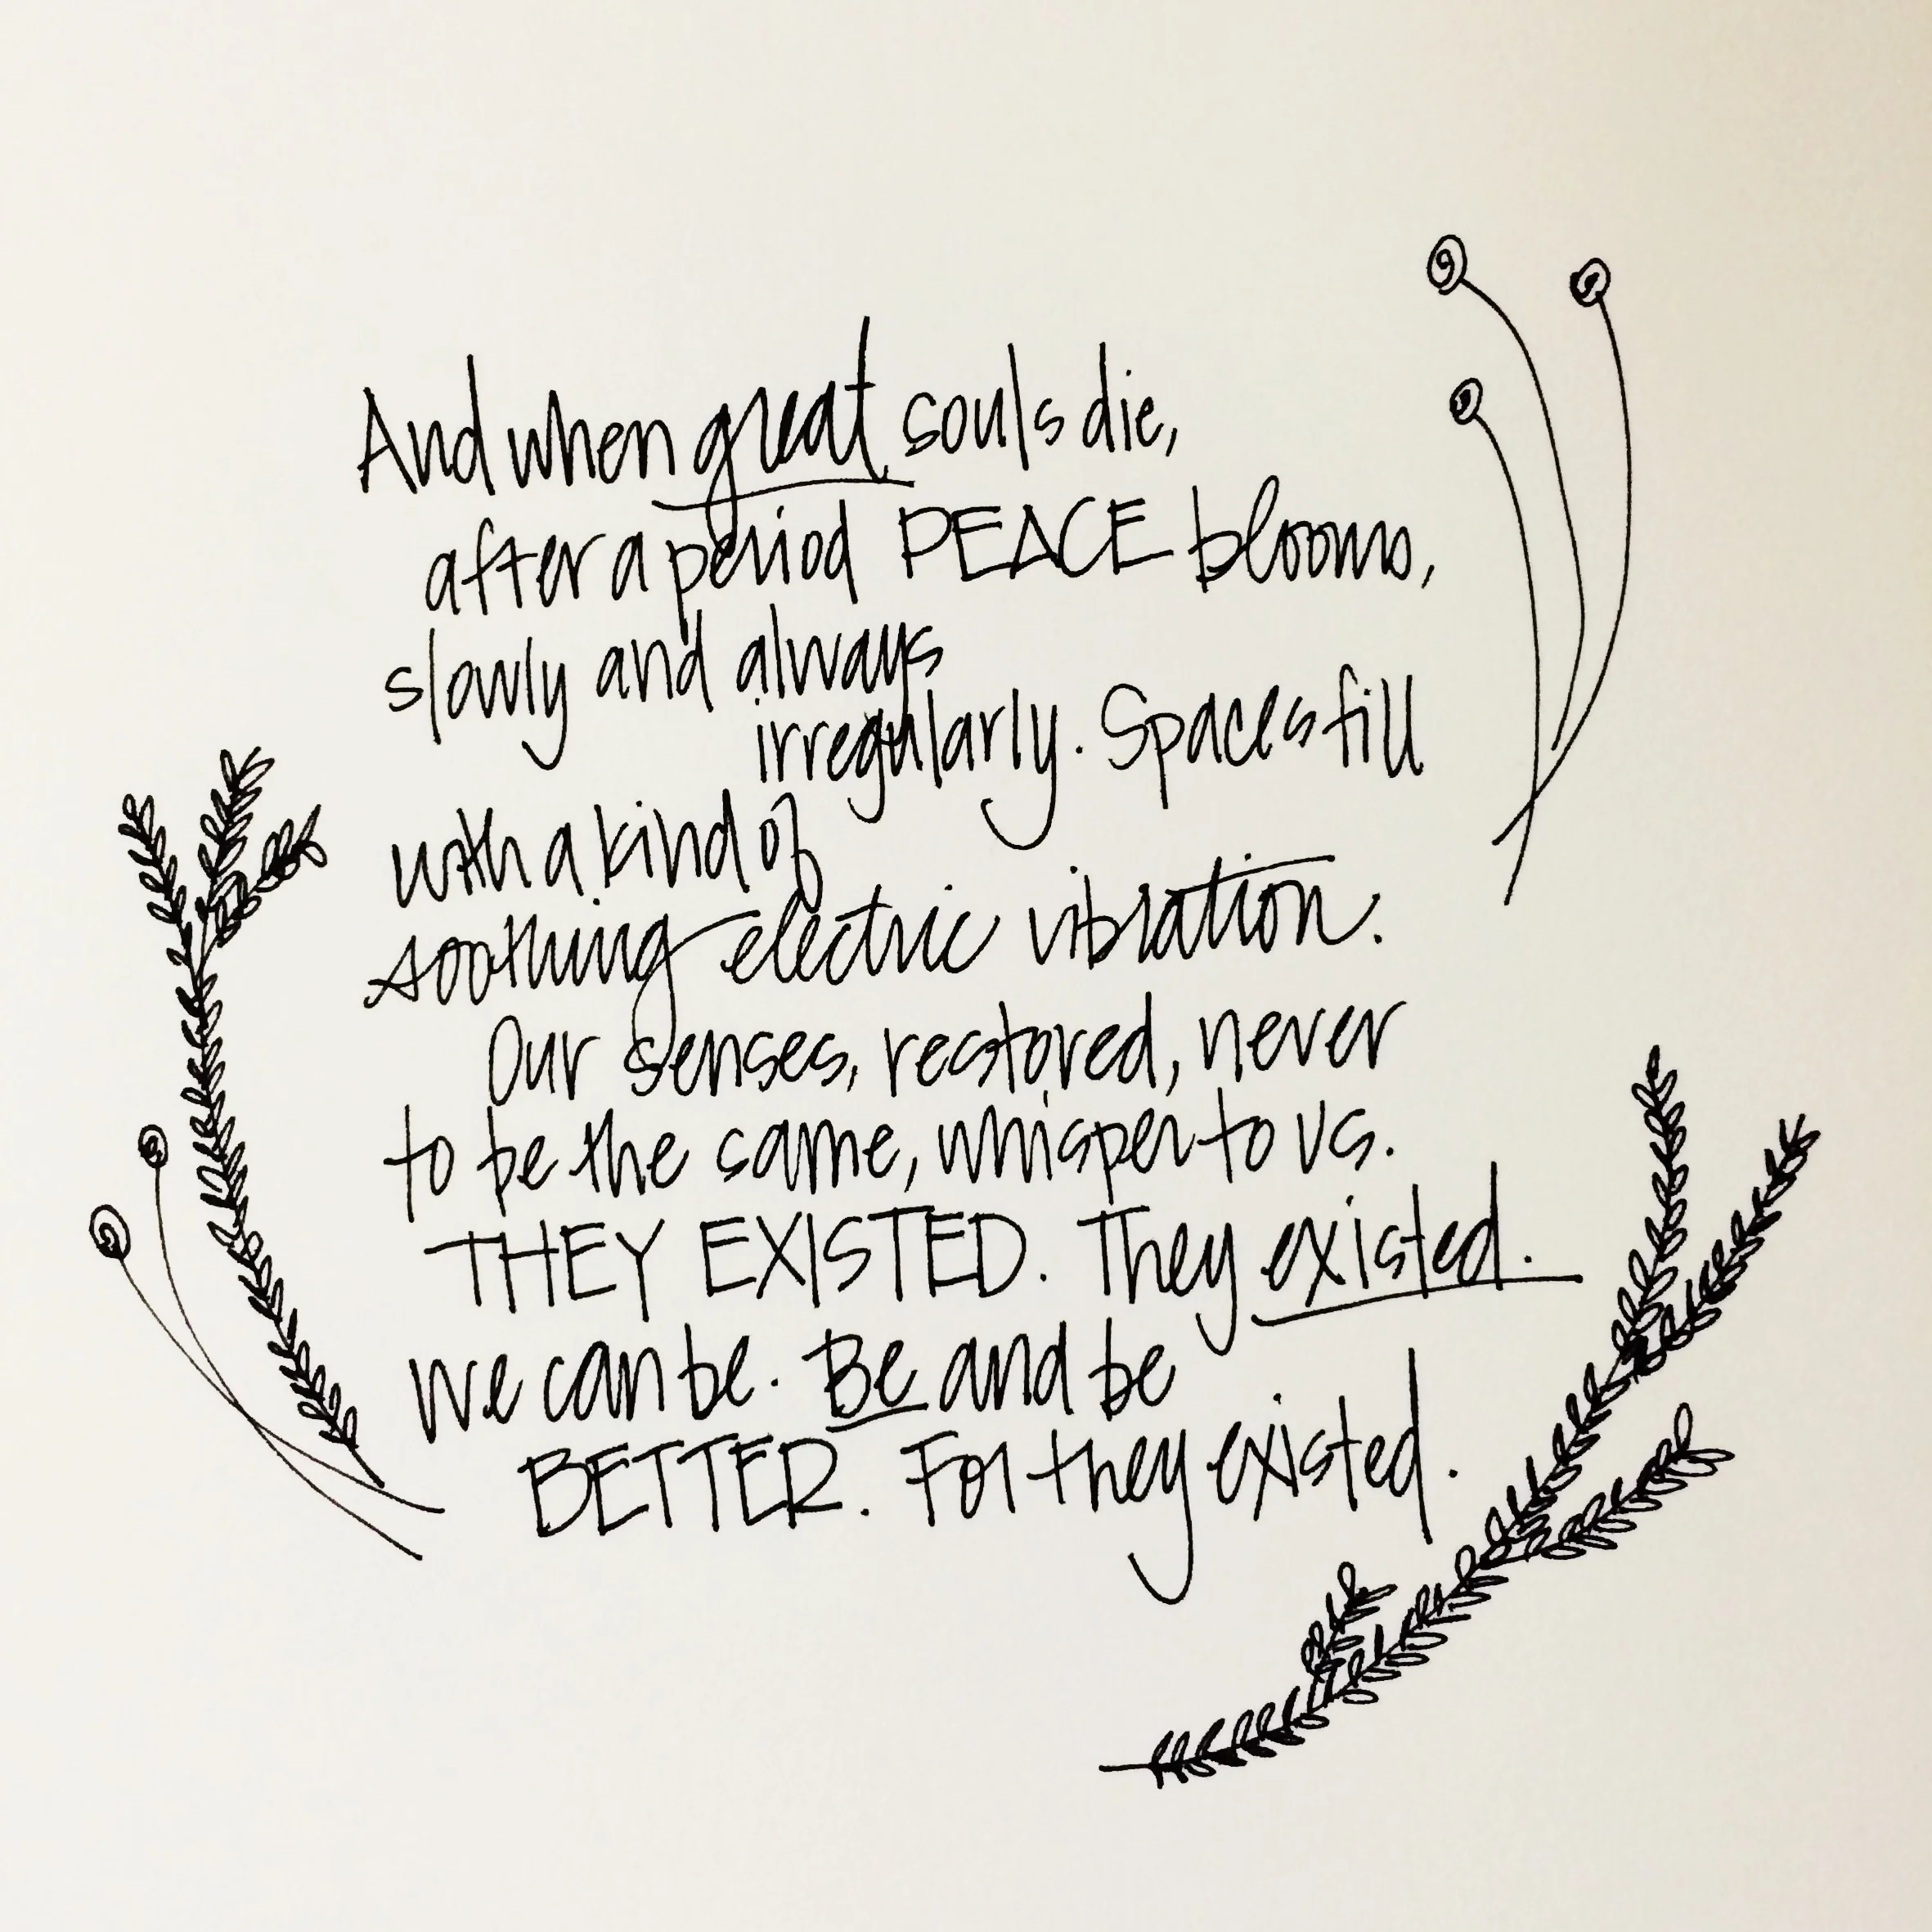 And when great souls die,
after a period PEACE blooms,
slowly and always
irregularly. Spaces fill
with a kind of
soothing electric vibration.
Our senses, restored, never
to be the same, whisper to us.
THEY EXISTED. They existed.
We can be. Be and be
BETTER. For they existed.